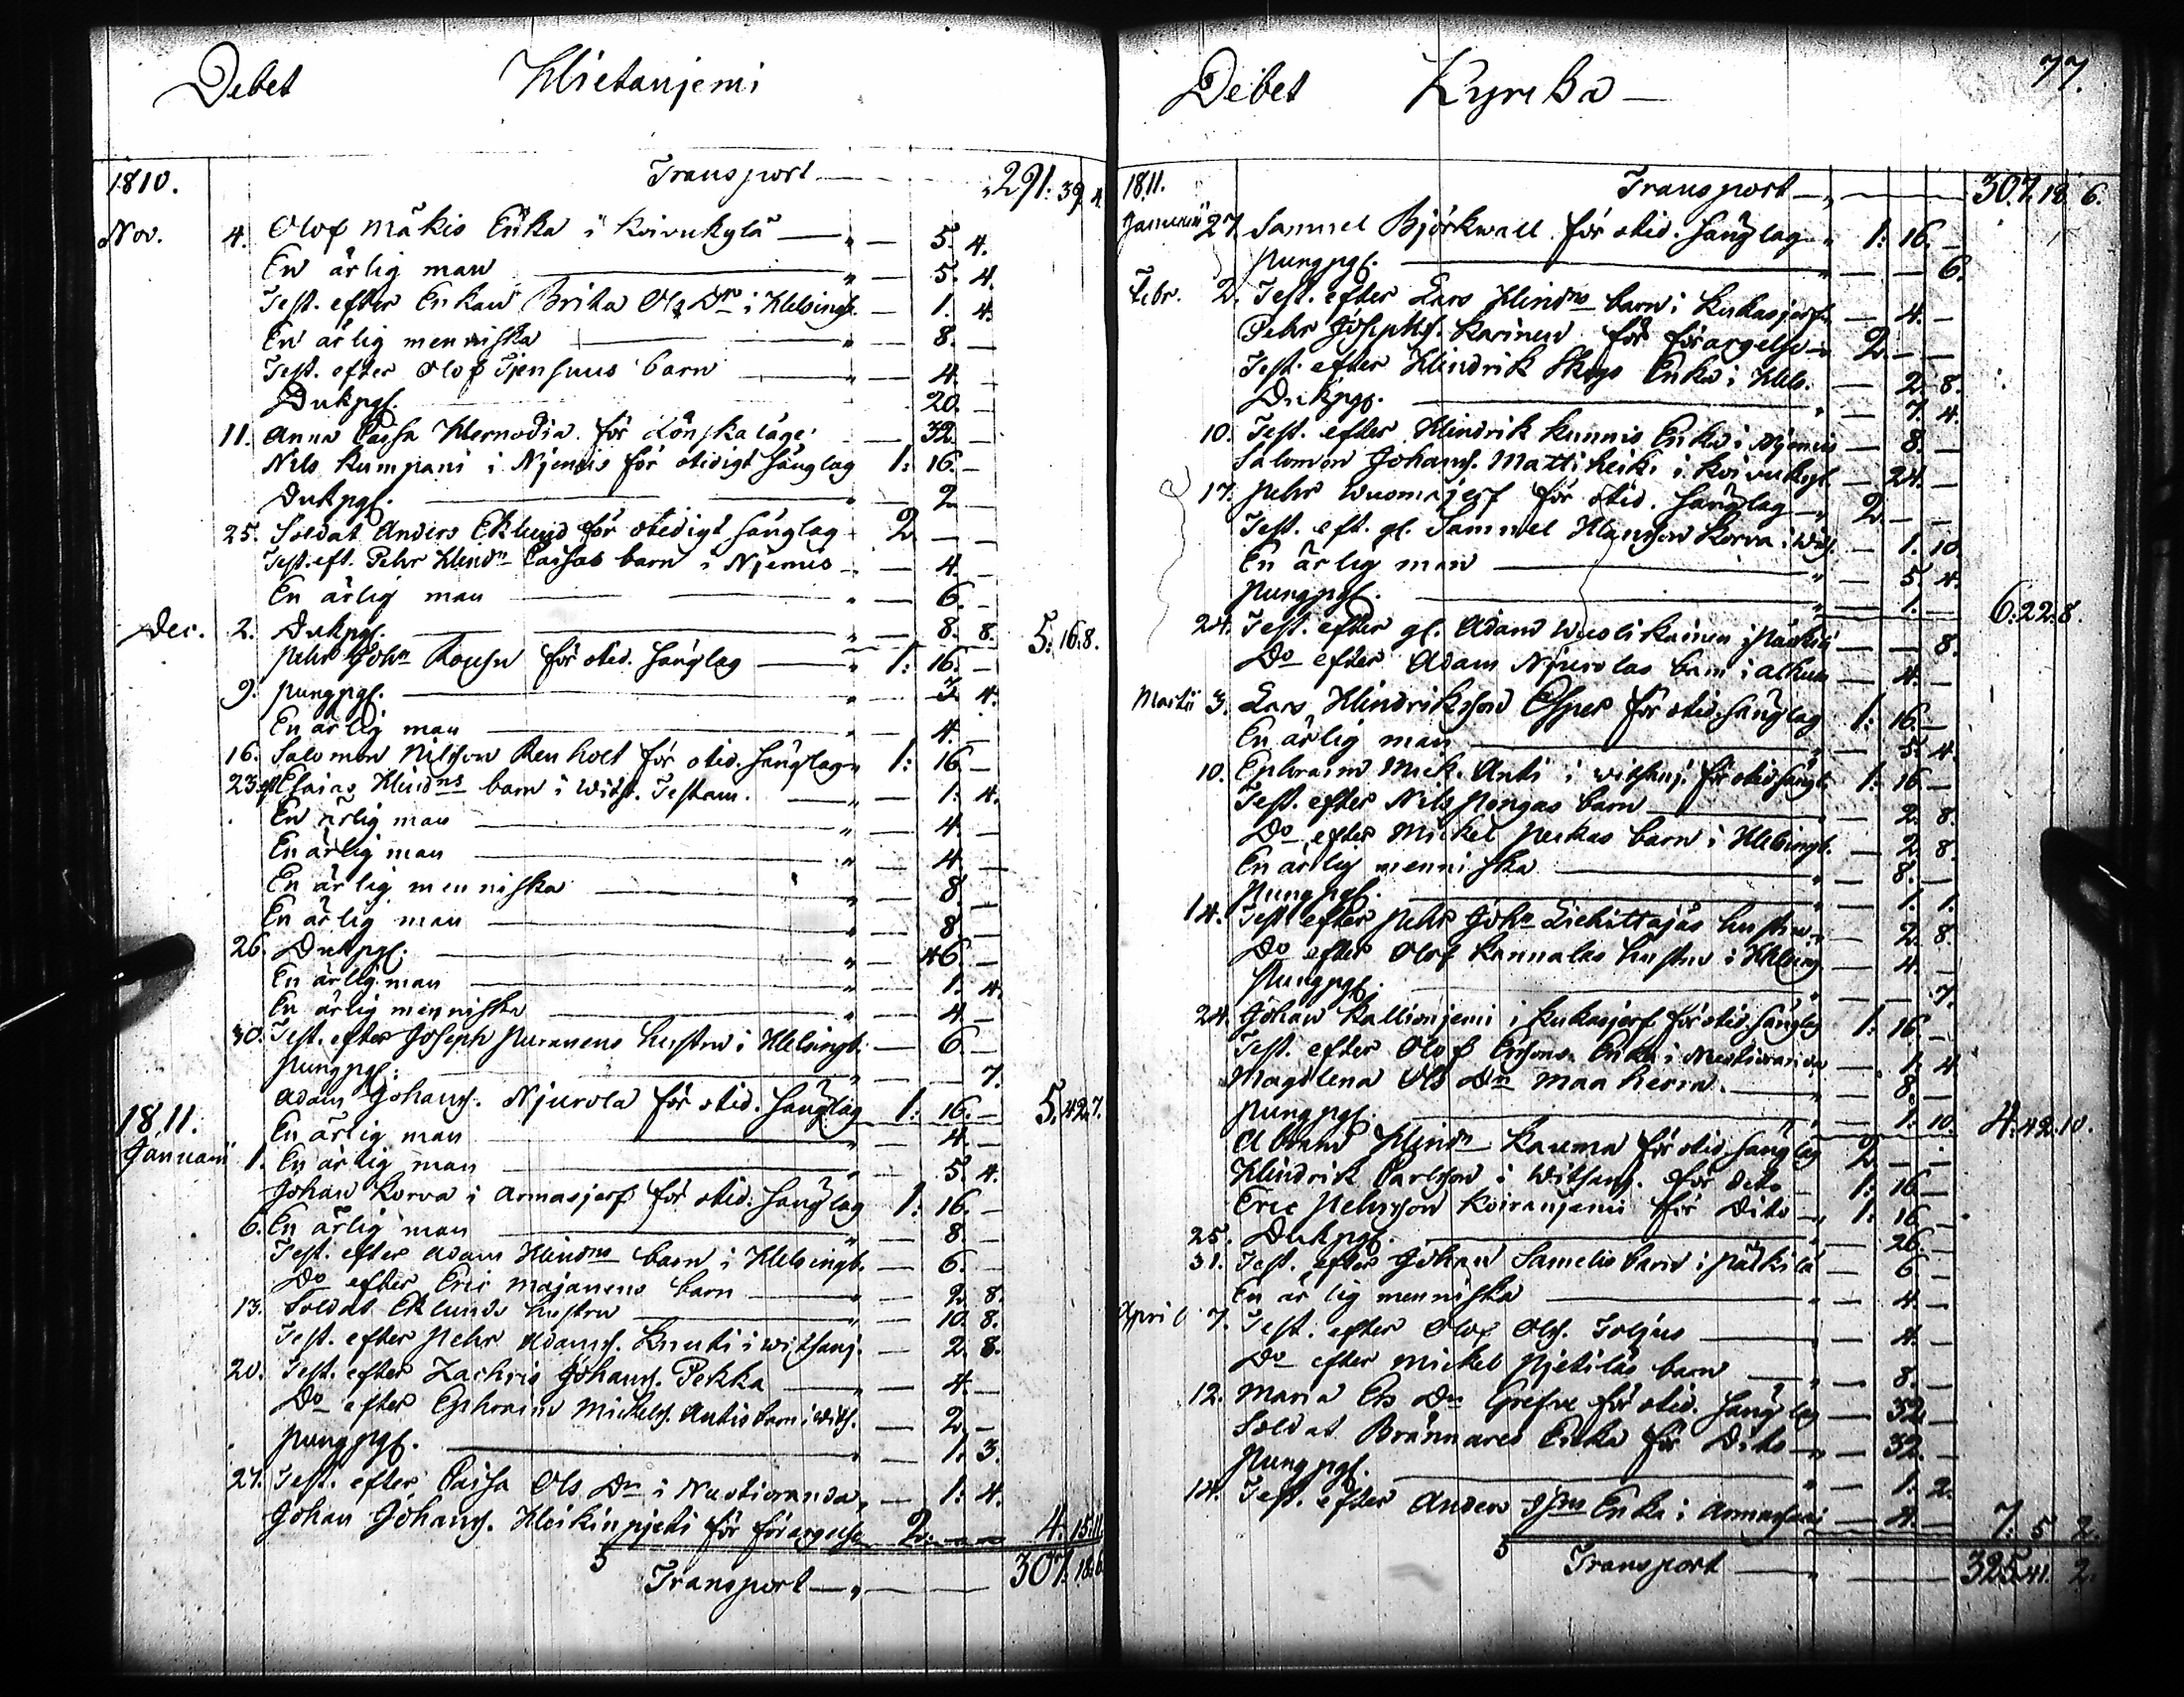 Debet Hietanjemi
1810. Transport — 291: 39. 4.
Nov. 4. Olof Mäkis Enka i Koivukylä — 5. 4.
En ärlig man — 5. 4.
Test. efter Enkan Brita Ols Dr i Helsingb. — 1. 4.
En ärlig menniska — 8. —
Test. efter Olof barn — 4. —
Dukpgr. 20. —
11. Anna Caisa Hernodia för Lönskaläge — 32. —
Nils Kumpani i Njemis för otidigt sänglag 1: 16. —
Dukpgr. — 2. —
25. Soldat Anders Eklund för otidigt sänglag 2. — —
Test. eft. Pehr Hindn barn i Njemis — 4. —
En ärlig man — 6. —
Dec. 2. Dukpgr. — 8. 8. 5: 16. 8.
Pehr John för otid. sänglag — 1: 16. —
9. Pungpgr. — 3. 4.
En ärlig man — 4. —
16. Salomon Nilsson Renholt för otid. sänglag 1: 16. —
23. Esaias Hindns barn i Wits. Testam. — 1. 4.
En ärlig man — 4. —
En ärlig man — 4. —
En ärlig menniska — 8. —
En ärlig man — 8. —
26. Dukpgr. — 46. —
En ärlig man — 1. 4.
En ärlig menniska — 4. —
30. Test. efter Joseph Puranens hustru i Helsingb. — 6. —
Pungpgr. — 7.
Adam Johans. Njurola för otid. sänglag 1: 16. — 5. 42. 7.
1811. En ärlig man — 4. —
Januarii 1. En ärlig man — 5. 4.
Johan Korva i Armasjerf för otid. sänglag 1: 16. —
6. En ärlig man — 8. —
Test. efter Adam Hindns barn i Helsingb. — 6. —
Do efter Eric Majanens barn — 2. 8.
13. Soldat Eklunds hustru — 10. 8.
Test. efter Pehr Adams. Knuti i Witsanj. — 2. 8.
20. Test. efter Zachris Johans. Pekka — 4. —
Do efter Ephraim Mickels. Antis barn i Wits. — 2. —
Pungpgr. — 1. 3.
27. Test. efter Caisa Ols Dr i Nuotioranda — 1. 4.
Johan Johans. Heikinpjeti för förargelse 2. — — 4. 15. 11.
Transport — 307. 18. 6
Debet Kyrcka — 77.
1811. Transport — 307. 18. 6.
Januarii 27. Samuel Björkwall för otid. sänglag 1: 16. —
Pungpgr. — 6.
Febr. 2. Test. efter Lars Hindns barn i Kukasjerf — 4. —
Pehr Josephs. Karinen för förargelse 2. — —
Test. efter Hindrik Skogs Enka i Hels. — 2. 8.
Dukpgr. — 7. 4.
10. Test. efter Hindrik Kunnis Enka i Njemis — 8. —
Salomon Johans. Mattiheiki i Koivukyl. — 24. —
17. Pehr Wuomajerf för otid. sänglag — 2. — —
Test. eft. gl. Samuel Hansson Korva i Wits. — 1. 10.
En ärlig man — 5. 4.
Pungpgr. — 1. — 6: 22. 8.
24. Test. efter gl. Adam Wuolikainen i Päckilä — 8.
Do efter Adam Njurolas barn i Alkul. — 4. —
Martii 3. Lars Hindriksson för otid. sänglag 1: 16. —
En ärlig man — 5. 4.
10. Ephraim Mick. Anti i Witsanj. för otid sängl. 1: 16. —
Test. efter Nils Pongas barn — 2. 8.
Do efter Mickel Peckas barn i Helsingb. — 2. 8.
En ärlig menniska — 8. —
Pungpgr. — 1. 1.
14. Test. efter Pehr John Liehittäjäs hustru — 2. 8.
Do efter Olof Kannalas hustru i Helsing. — 4. —
Pungpgr. — 7.
24. Johan Kallionjemi i Kukasjerf för otid. sänglag 1: 16. —
Test. efter Olof Ersons Enka i Nuotioranda — 1. 4.
Magdlena Ols Dr Maaherra — 8. —
Pungpgr. — 1. 10. 4. 42. 10.
Abram Hindn Kauma för otid. sänglag 2. — —
Hindrik Carlsson i Witsanj. för Dito — 1: 16. —
Eric Pehrsson Koiranjemi för Dito — 1: 16. —
25. Dukpgr. — 26. —
31. Test. efter Johan Samelis barn i Päckilä — 6. —
En ärlig menniska — 4. —
April 7. Test. efter Olof Ols. — 4. —
Do efter Mickel Pjetiläs barn — 8. —
12. Maria Ers Dr Grefve för otid. sänglag — 32. —
Soldat Brännares Enka för Dito — 32. —
Pungpgr. — 1. 2.
14. Test. efter Anders Enka i — 4. — 7. 5. 2.
Transport — 325. 41. 2.